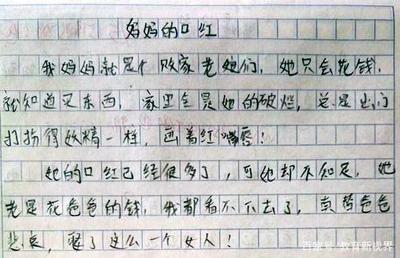 妈妈的口红
我妈妈就是个败家老娘们，她只会花钱，
就知道买东西，家里全是她的破烂，总是出门
打扮得妖精一样，画着红嘴唇！
她的口红已经很多了，可她却不知足，她
老是花爸爸的钱，我都看不下去了，真替爸爸
悲哀，娶了这么一个女人！
百家号/教育新视界